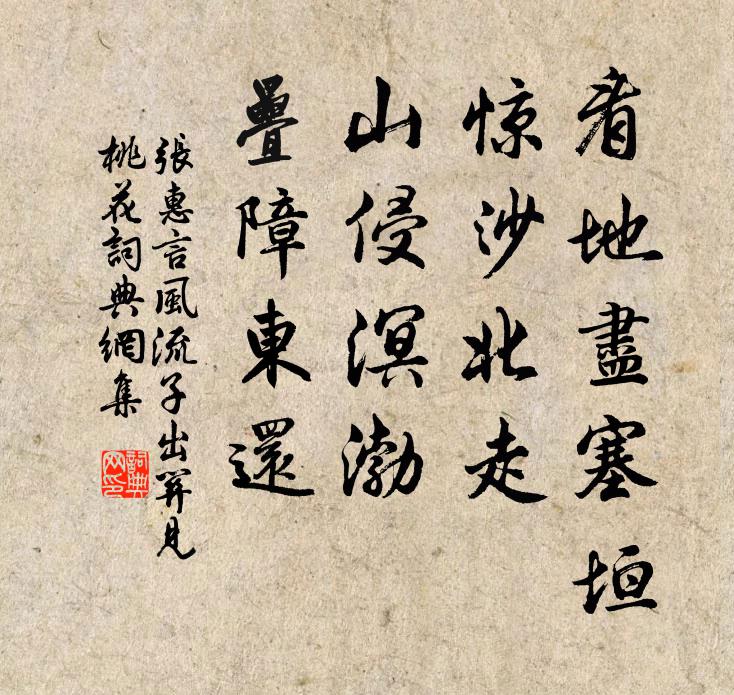 看地盡塞垣
惊沙北走
山侵溟渤
疊障東還
張惠言風流子出關見
桃花詞典網集
詞典网印